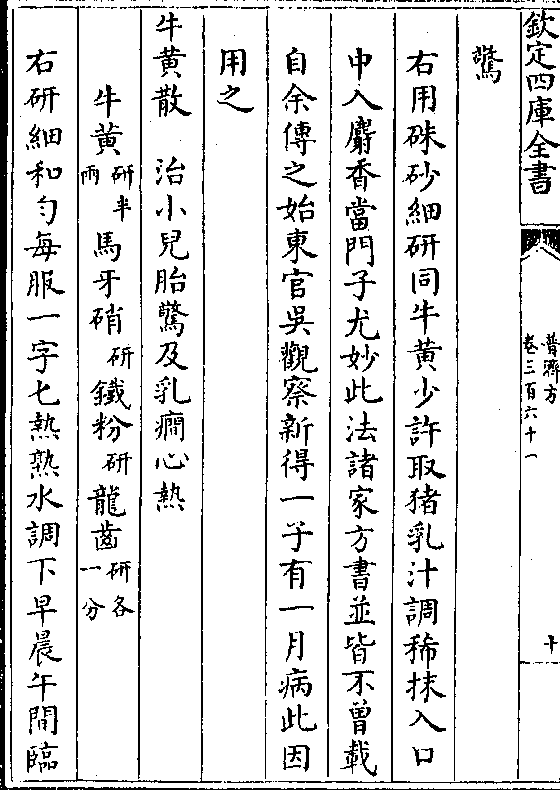 欽定四庫全書
普濟方
卷三百六十一
十
驚
右用硃砂細研同牛黄少許取猪乳汁調稀抹入口
中入麝香當門子尤妙此法諸家方書並皆不曾載
自余傳之始東官吳觀察新得一子有一月病此因
用之
牛黄散　治小兒胎驚及乳癎心熱
牛黄研半兩　馬牙硝研　鐵粉研　龍齒研各一分
右研細和勻每服一字七熱熟水調下早晨午間臨